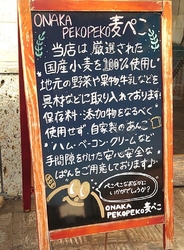 ONAKA
PEKOPEKO麦ぺこ
当店は厳選された
国産小麦を100%使用し
地元の野菜や果物牛乳などを
具材などに取り入れております
保存料・添加物をなるべく
使用せず、自家製のあんこ
ハム・ベーコン・クリームなど
手間隙をかけた安心安全な
ぱんをご用意しております♪
ぺこぺこなおなかに
いかがでしょうか?
ONAKA
PEKOPEKO麦ぺこ